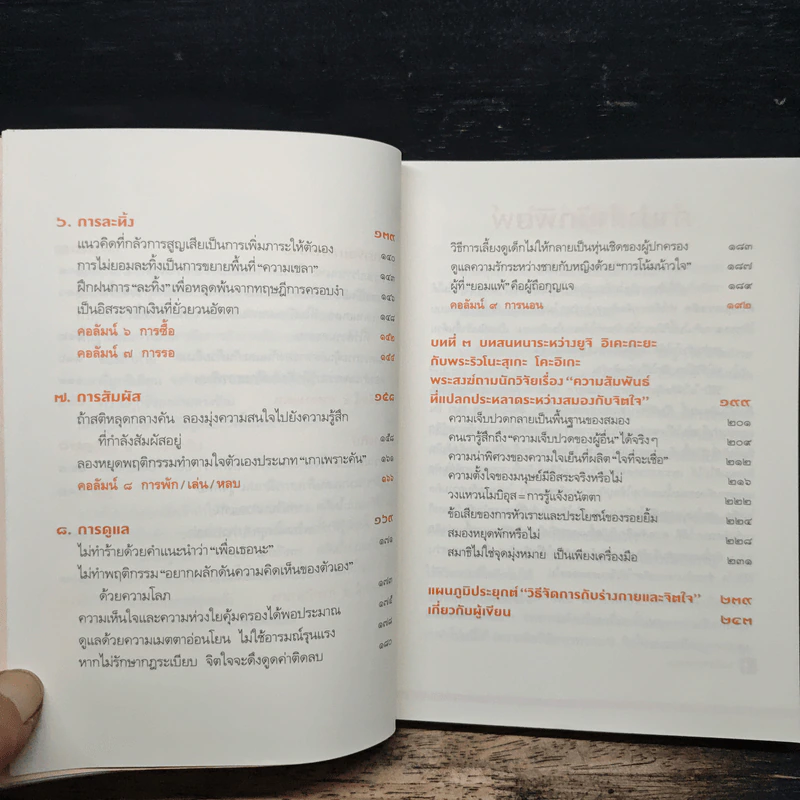 ๖. การละทิ้ง ๑๓๙
แนวคิดที่กลัวการสูญเสียเป็นการเพิ่มภาระให้ตัวเอง ๑๔๐
การไม่ยอมละทิ้งเป็นการขยายพื้นที่ “ความเขลา” ๑๔๓
ฝึกฝนการ “ละทิ้ง” เพื่อหลุดพ้นจากทฤษฎีการครอบงำ ๑๔๖
เป็นอิสระจากเงินที่ยั่วยวนอัตตา ๑๔๘
คอลัมน์ ๖ การซื้อ ๑๕๒
คอลัมน์ ๗ การรอ ๑๕๕
๗. การสัมผัส ๑๕๘
ถ้าสติหลุดกลางคัน ลองมุ่งความสนใจไปยังความรู้สึก
ที่กำลังสัมผัสอยู่ ๑๕๘
ลองหยุดพฤติกรรมทำตามใจตัวเองประเภท “เกาเพราะคัน” ๑๖๑
คอลัมน์ ๘ การพัก/เล่น/หลบ ๑๖๖
๘. การดูแล ๑๖๙
ไม่ทำร้ายด้วยคำแนะนำว่า “เพื่อเธอนะ” ๑๗๑
ไม่ทำพฤติกรรม “อยากผลักดันความคิดเห็นของตัวเอง”
ด้วยความโลภ ๑๗๓
ความเห็นใจและความห่วงใยคุ้มครองได้พอประมาณ ๑๗๕
ดูแลด้วยความเมตตาอ่อนโยน ไม่ใช้อารมณ์รุนแรง ๑๗๘
หากไม่รักษากฎระเบียบ จิตใจจะดึงดูดค่าติดลบ ๑๘๐
วิธีการเลี้ยงดูเด็กไม่ให้กลายเป็นหุ่นเชิดของผู้ปกครอง ๑๘๓
ดูแลความรักระหว่างชายกับหญิงด้วย “การโน้มน้าวใจ” ๑๘๗
ผู้ที่ “ยอมแพ้” คือผู้ถือกุญแจ ๑๘๙
คอลัมน์ ๙ การนอน ๑๙๒
บทที่ ๓ บทสนทนาระหว่างยูจิ อิเคะกะยะ
กับพระริวโนะสุเกะ โคะอิเกะ
พระสงฆ์ถามนักวิจัยเรื่อง “ความสัมพันธ์
ที่แปลกประหลาดระหว่างสมองกับจิตใจ” ๑๙๙
ความเจ็บปวดกลายเป็นพื้นฐานของสมอง ๒๐๑
คนเรารู้สึกถึง “ความเจ็บปวดของผู้อื่น” ได้จริงๆ ๒๐๙
ความน่าพิศวงของความใจเย็นที่ผลิต “ใจที่จะเชื่อ” ๒๑๒
ความตั้งใจของมนุษย์มีอิสระจริงหรือไม่ ๒๑๖
วงแหวนโมบิอุส = การรู้แจ้งอนัตตา ๒๒๒
ข้อเสียของการหัวเราะและประโยชน์ของรอยยิ้ม ๒๒๔
สมองหยุดพักหรือไม่ ๒๒๘
สมาธิไม่ใช่จุดมุ่งหมาย เป็นเพียงเครื่องมือ ๒๓๑
แผนภูมิประยุกต์ “วิธีจัดการกับร่างกายและจิตใจ” ๒๓๙
เกี่ยวกับผู้เขียน ๒๔๓